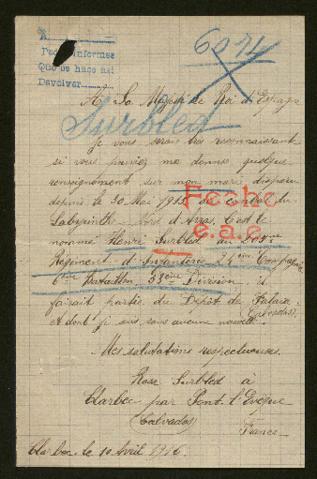 Pedir informes
Que se hace así
Devolver
6074
A Sa Majesté le Roi d'Espagne
Surbled
Je vous serais très reconnaissante
si vous pouviez me donner quelque
renseignement sur mon mari disparu
depuis le 30 Mai 1915 au combat du
Labyrinthe Nord d'Arras. C'est le
nommé Henri Surbled au 205e
Régiment d'Infanterie 24ème Compagnie
6ème Bataillon 53ème Division il
faisait partie du Dépôt de Falaise
(Calvados)
et dont je suis sans aucune nouvelle.
Fecha
e.a.e
Mes salutations respectueuses.
Rose Surbled à
Clarbec par Pont l'Evêque
(Calvados)
France
Clarbec le 10 Avril 1916